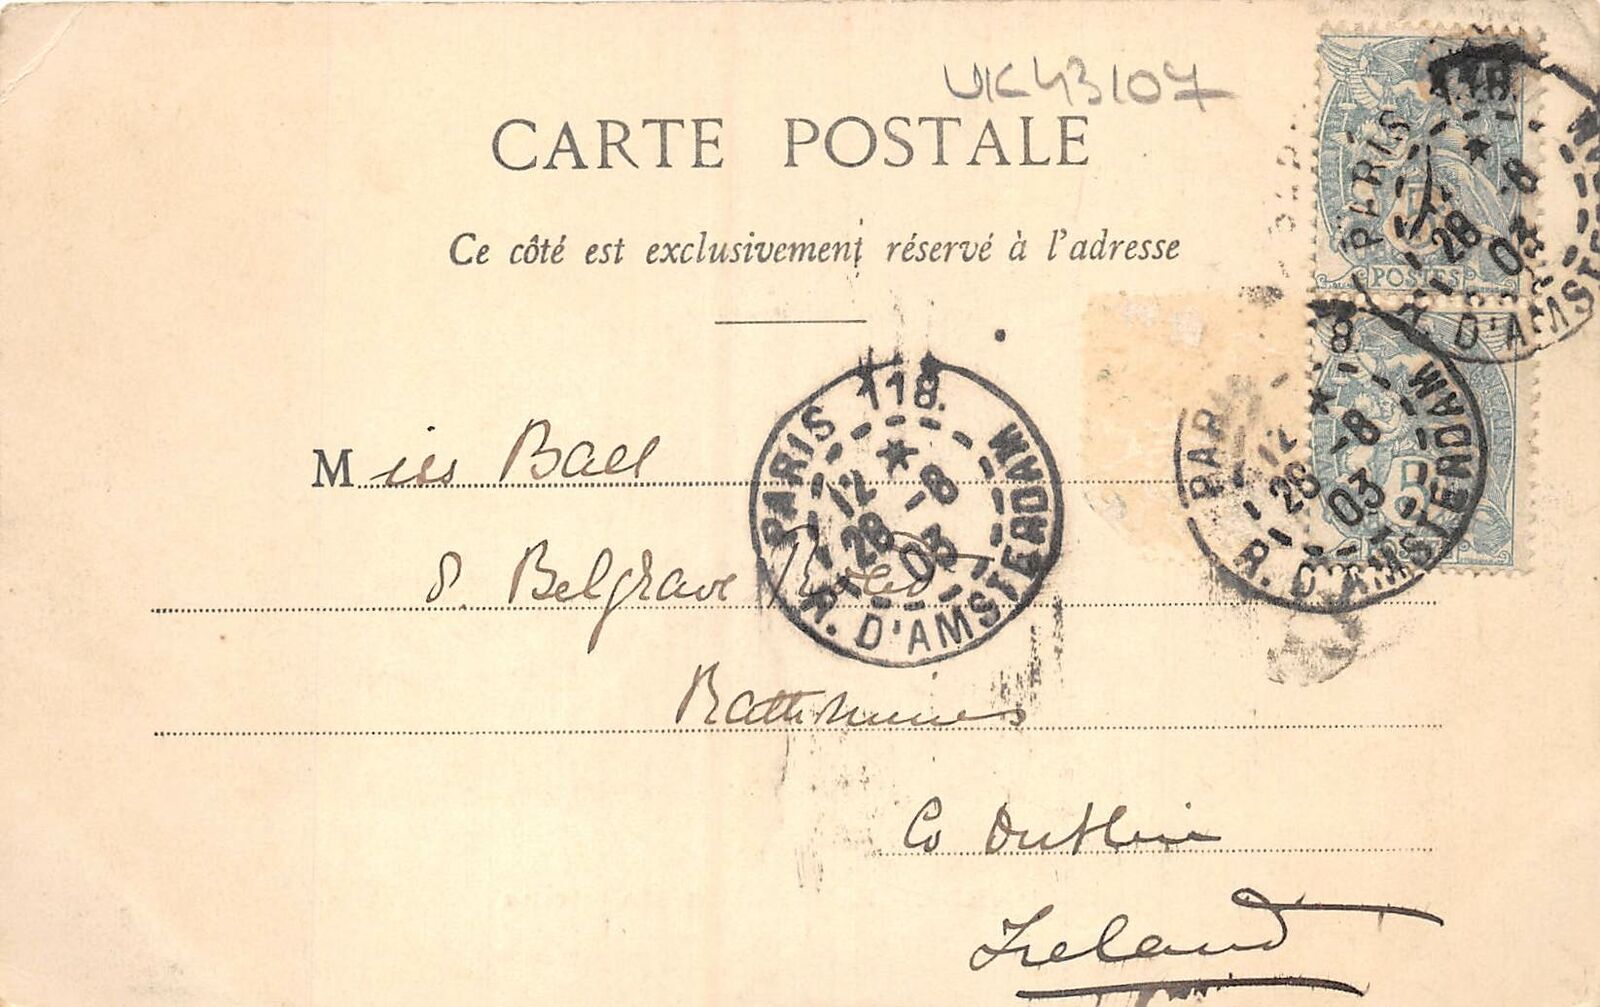 UK43107
CARTE POSTALE
Ce côté est exclusivement réservé à l'adresse
Miss Ball
8. Belgrave Road
Rathmines
Co Dublin
Ireland
PARIS 118.
12
28 -8
03
R. D'AMSTERDAM
PARIS 118
28 -8
03
R. D'AMSTERDAM
POSTES
PARIS
12
28 -8
03
R. D'AMSTERDAM
5